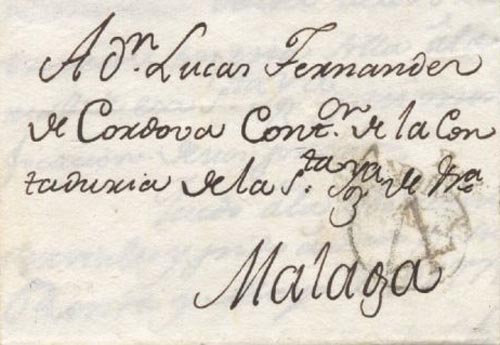 A Dn. Lucas Fernandes
de Cordova Conton. de la Con
taduria de la Sta. de
Malaga